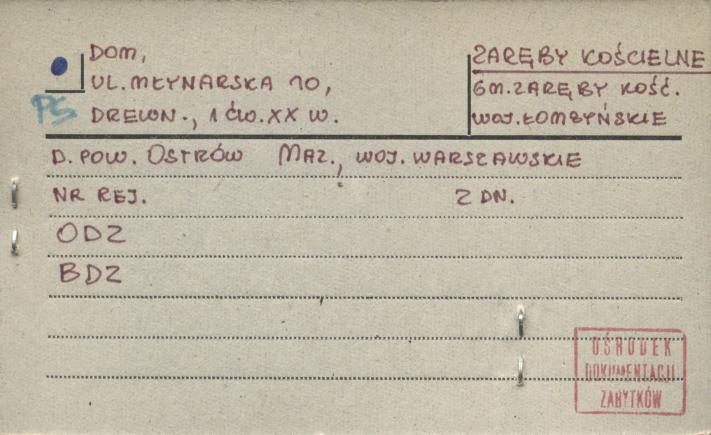 DOM,
UL. MŁYNARSKA 10,
PS DREWN., 1 ĆW. XX W.
ZARĘBY KOŚCIELNE
GM. ZARĘBY KOŚĆ.
WOJ. ŁOMŻYŃSKIE
D. POW. OSTRÓW MAZ., WOJ. WARSZAWSKIE
NR REJ. Z DN.
ODZ
BDZ
OŚRODEK
DOKUMENTACJI
ZABYTKÓW